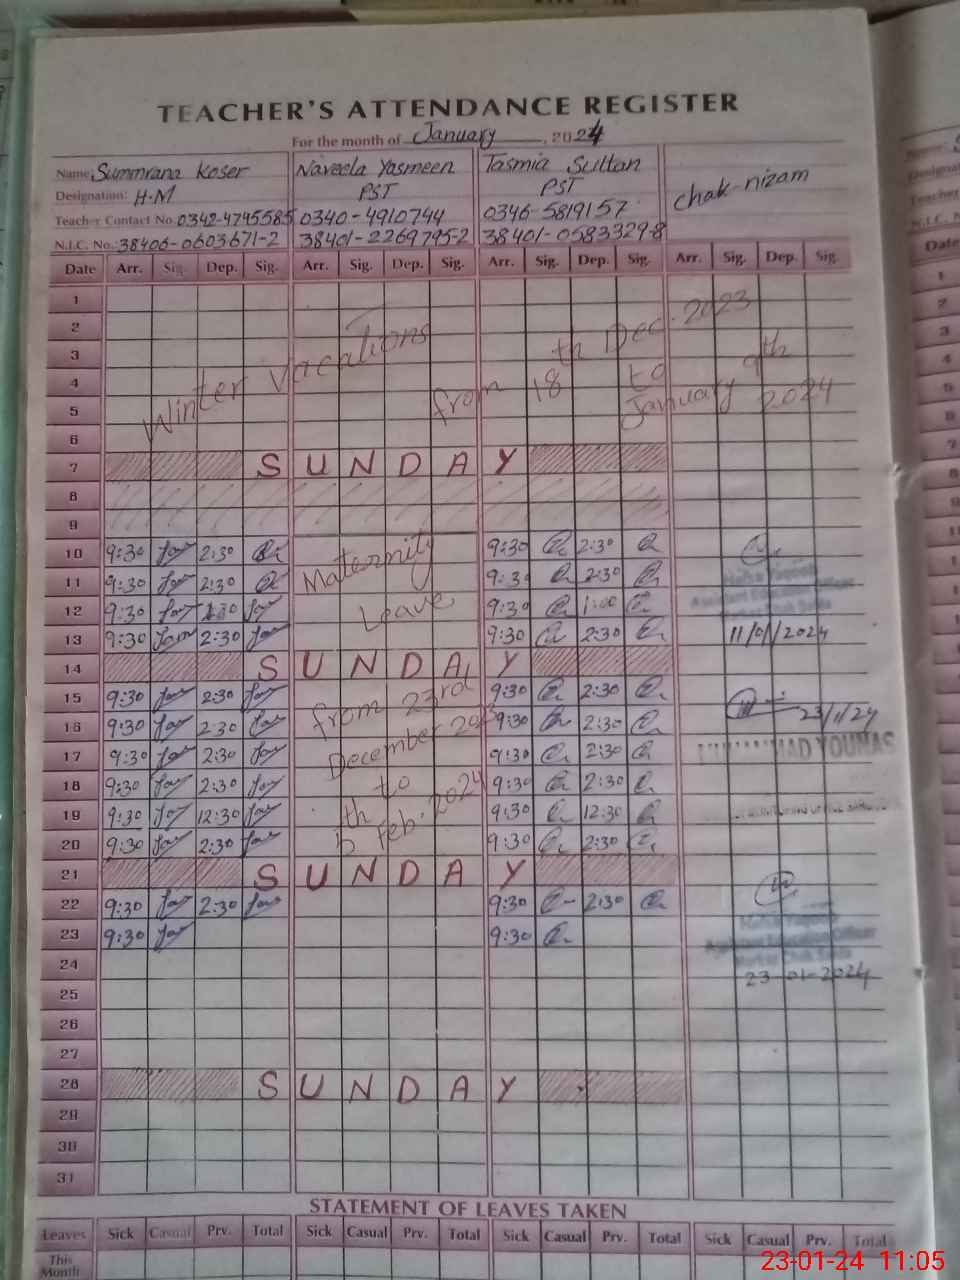 TEACHER'S ATTENDANCE REGISTER
For the month of January, 2024
Name: Summrana Koser Naveela Yasmeen Tasmia Sultan
Designation: H.M PST PST chak-nizam
Teacher Contact No. 0342-4795585 0340-4910744 0346-5819157
N.I.C. No.: 38406-0603671-2 38401-2269795-2 38401-0583329-8
Date Arr. Sig. Dep. Sig. Arr. Sig. Dep. Sig. Arr. Sig. Dep. Sig. Arr. Sig. Dep. Sig.
1
2
3
4
5
6
Winter Vacations from 18th Dec. 2023 to January 9th 2024
7 SUNDAY
8
9
10 9:30 2:30 9:30 2:30
11 9:30 2:30 Maternity 9:30 2:30
Assistant Education Officer
12 9:30 Leave 9:30 1:00
13 9:30 2:30 9:30 2:30 11/01/2024
14 SUNDAY
15 9:30 2:30 from 23rd 9:30 2:30
16 9:30 2:30 December 2023 9:30 2:30 23/1/24
17 9:30 2:30 to 9:30 2:30 MUHAMMAD YOUNAS
18 9:30 2:30 5th Feb. 2024 9:30 2:30
19 9:30 12:30 9:30 12:30
20 9:30 2:30 9:30 2:30
21 SUNDAY
22 9:30 2:30 9:30 2:30
23 9:30 9:30
Assistant Education Officer
24 23-01-2024
25
26
27
28 SUNDAY
29
30
31
STATEMENT OF LEAVES TAKEN
Leaves Sick Casual Prv. Total Sick Casual Prv. Total Sick Casual Prv. Total Sick Casual Prv. Total
This Month
23-01-24 11:05